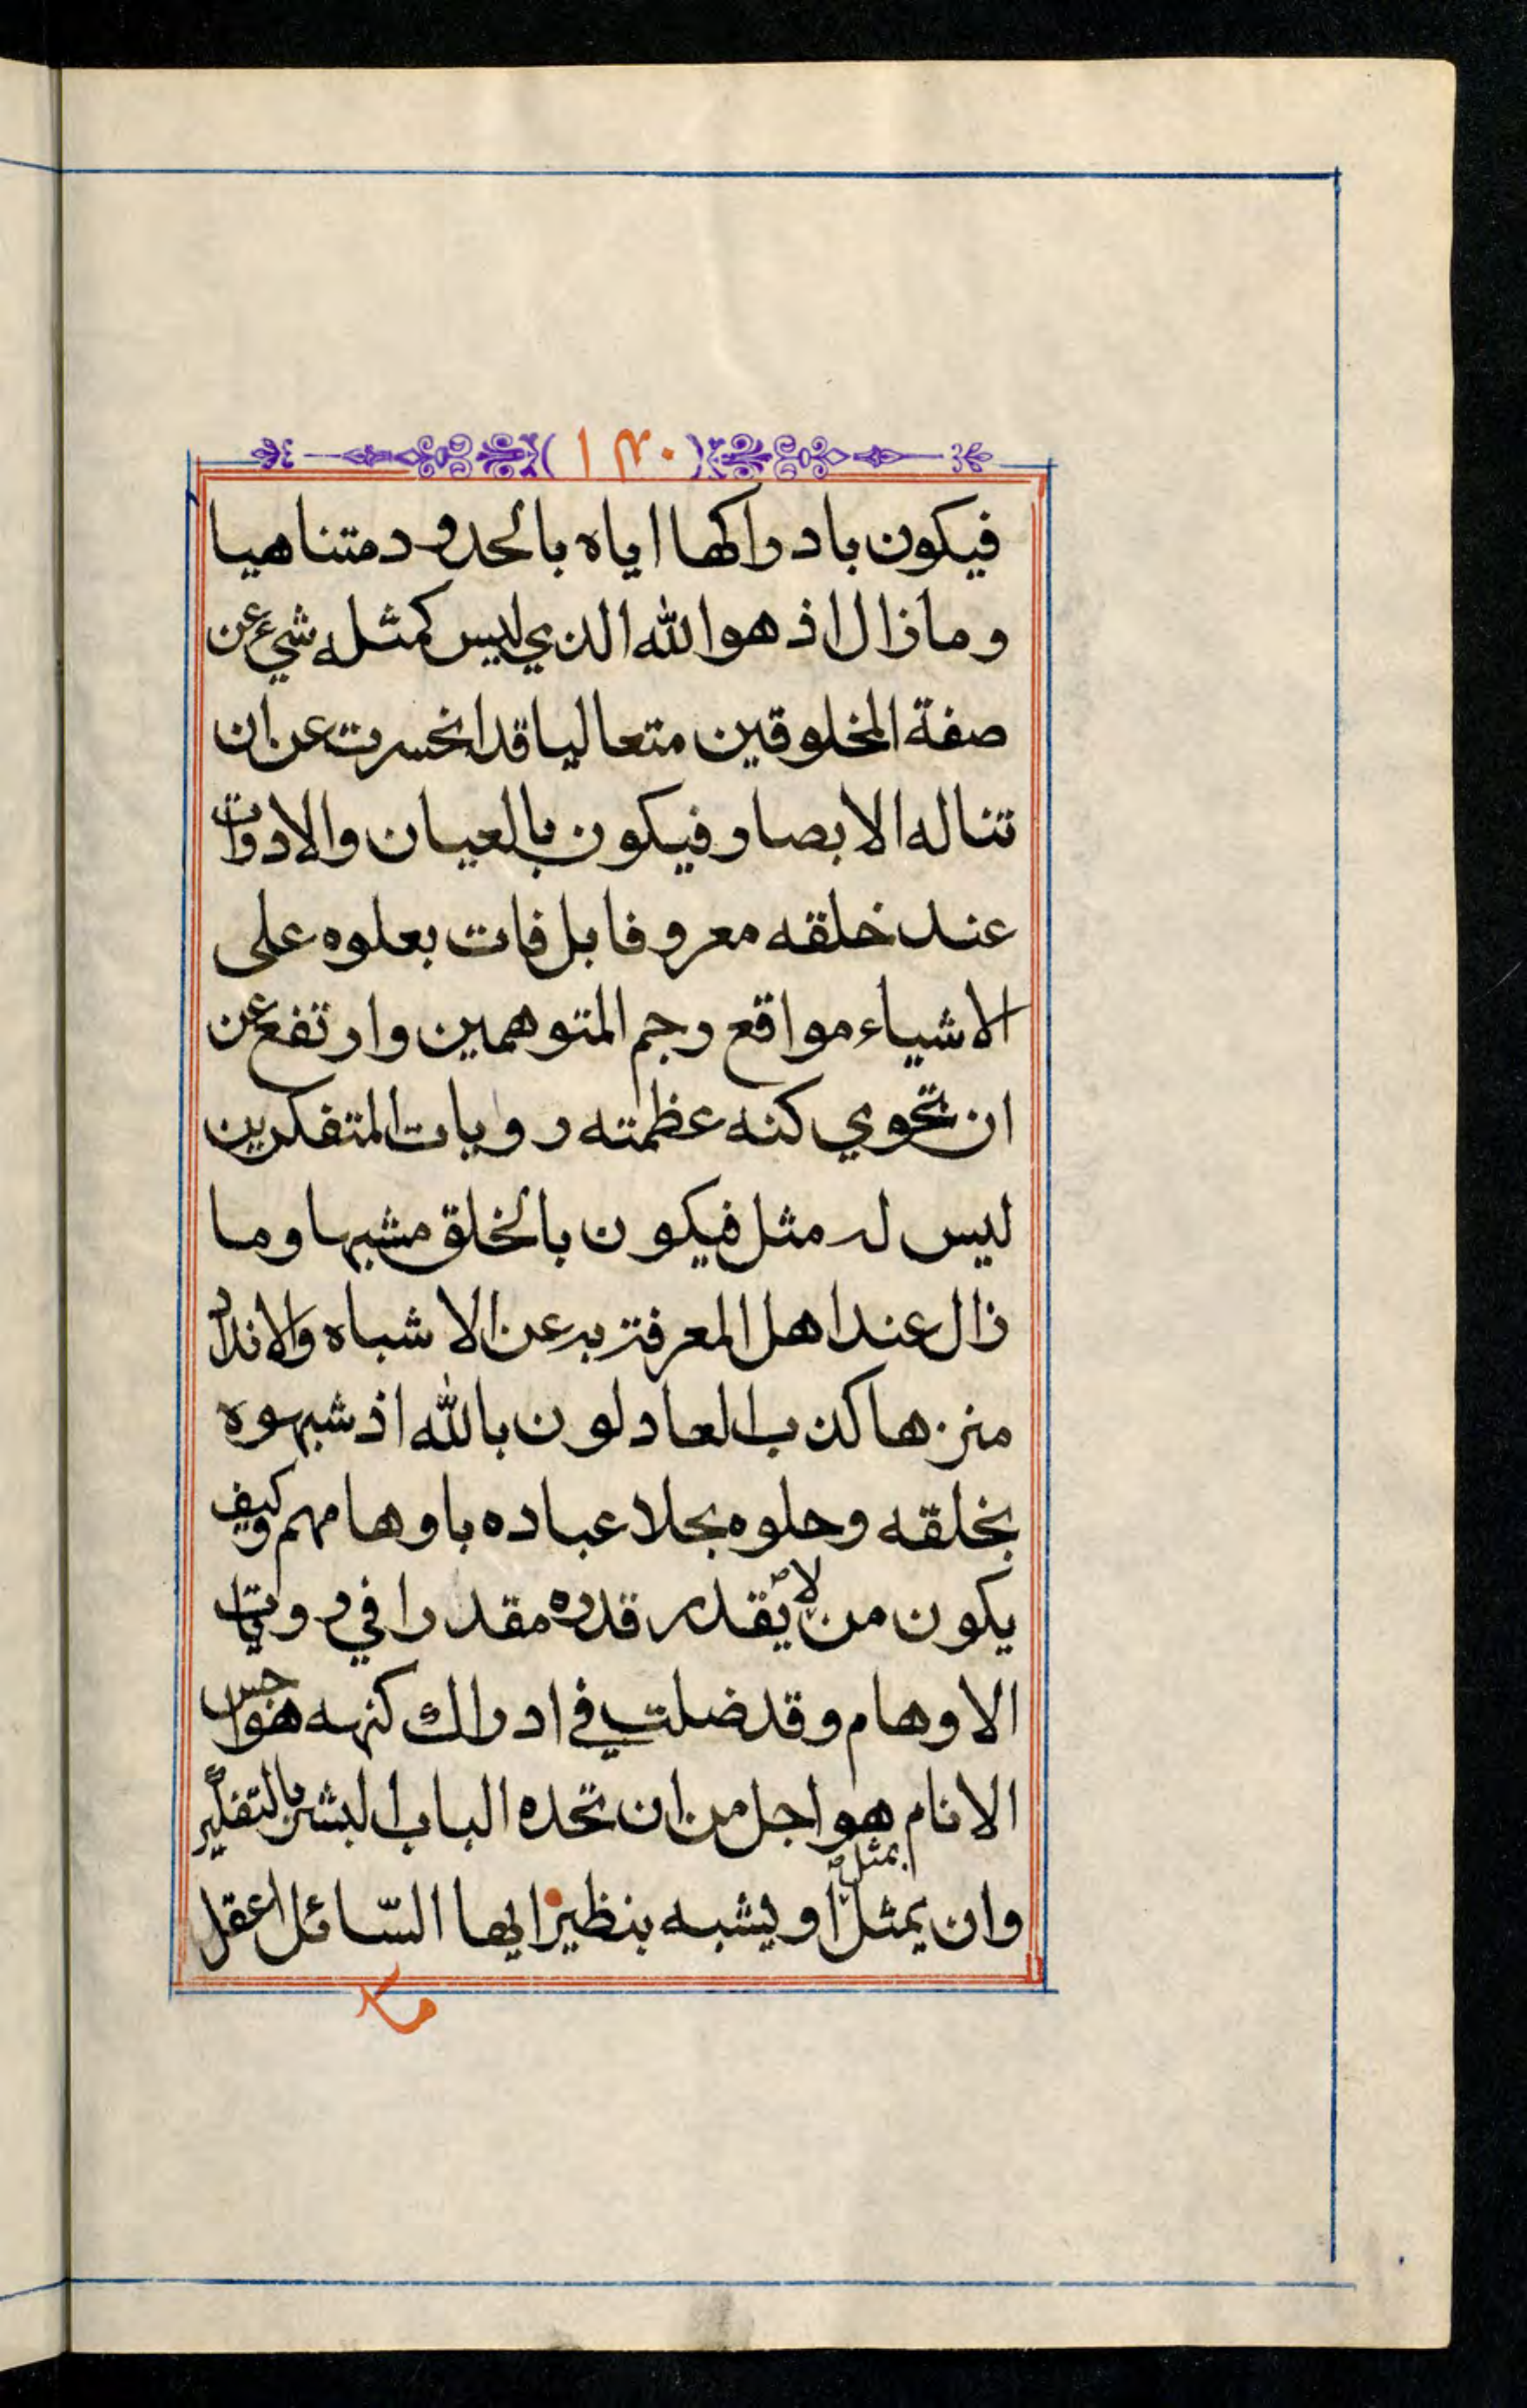 (١٣٠)
فيكون بادراكها اياه بالحدود متناهيا
وما زال اذ هو الله الذي ليس كمثله شيء عن
صفة المخلوقين متعاليا قد انحسرت عن ان
تناله الابصار فيكون بالعيان والادوات
عند خلقه معروفا بل فات بعلوه على
الاشياء مواقع رجم المتوهمين وارتفع عن
ان تحوي كنه عظمته رويات المتفكرين
ليس له مثل فيكون بالخلق مشبها وما
زال عند اهل المعرفة به عن الاشباه والانداد
منزها كذب العادلون بالله اذ شبهوه
بخلقه وحلوه بحلا عباده باوهامهم وكيف
يكون من لا يقدر قدره مقدرا في رويات
الاوهام وقد ضلت في ادراك كنهه هواجس
الانام هو اجل من ان تحده الباب البشر بالتفكير
بمثل
وان يمثل او يشبه بنظير ايها السّائل اعقل